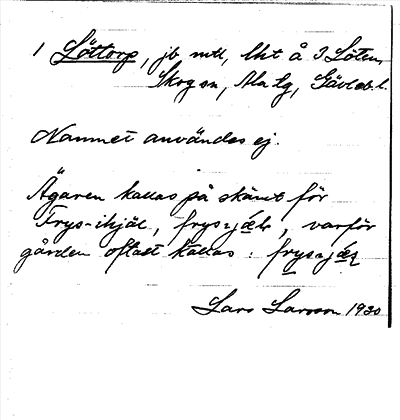 1 Löttorp, jb mtl, lht å 3 Löten,
Skog sn, Ala tg, Gävleb. l.
Namnet användes ej.
Ägaren kallas på skämt för
Frys-ihjäl, frys-jæl, varför
gården oftast kallas: frys-jæs
Lars Larsson 1930